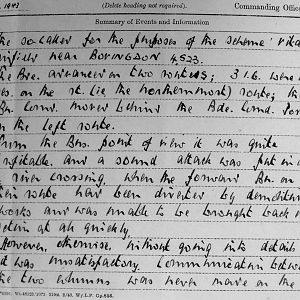 1943
(Delete heading not required).
Commanding Officer
Summary of Events and Information
the so-called for the purposes of the scheme
near BOVINGDON 4523.
The Bde. advanced on two routes; 3 I.G. were
on the rt. (ie the northernmost) route; the
Bn. Comd. moved behind the Bde. Comd.
on the left route.
From the Bns. point of view it was quite
profitable. And a sound attack was put in
river crossing, when the forward Bn. on
their route had been diverted by demolition
works and was unable to be brought back
action at all quickly.
However, otherwise, without going into details
it was unsatisfactory. Communication between
the two columns was never made on the